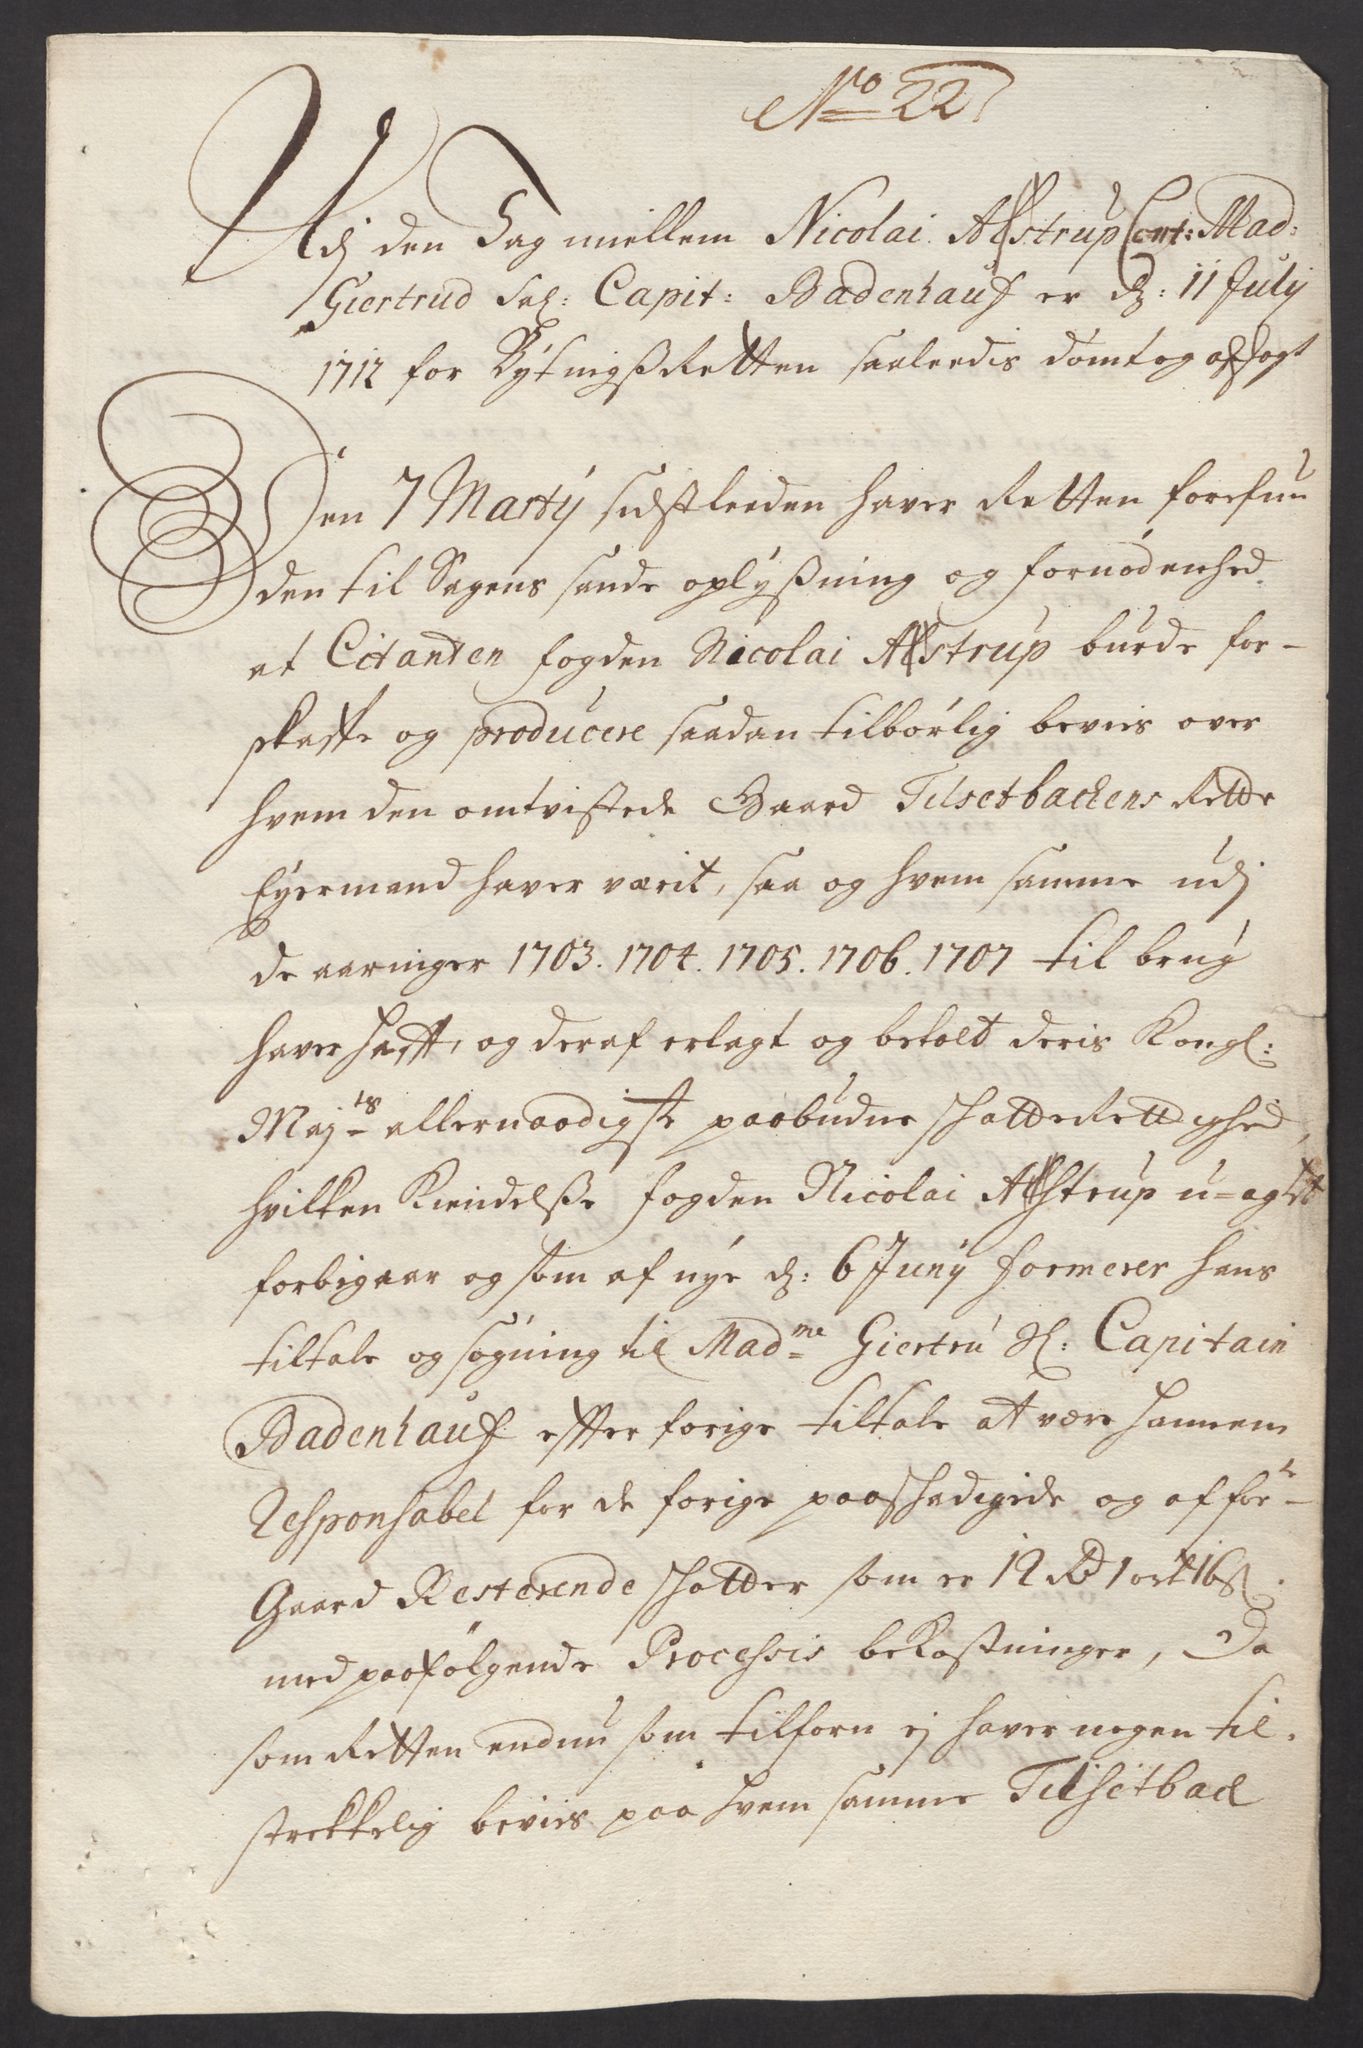 No 22
Udj den Sag miellem Nicolai Astrup Cont: Mad:
Giertrud Sal: Capit: Badenhauf er d: 11 July
1712 for BytingsRetten saaleedis dömt og afsagt
Den 7 Marty sidstleeden haver Retten forefun
den til Sagens sande oplysning og fornödenhed
at Citanten fogden Nicolai Astrup burde for-
skaffe og producere saadan tilbörlig beviis over
hvem den omtvistede Gaard Tilsetbachens Rette
Eyermand haver værit, saa og hvem samme udj
de aaringer 1703. 1704. 1705. 1706. 1707 til brug
haver hafft, og deraf erlagt og betalt deris Kongl:
Maj:ts allernaadigste paabudne skatteRettighed,
hvilken Kiendelsse fogden Nicolai Astrup u-agtet
forbigaar og som af nye d: 6 Juny formerer hans
tiltale og sögning til Mad:me Giertru Sl: Capitain
Badenhauf effter forige tiltale at være hannem
Responsabel for de forige paaskadigede og af for:te
Gaard Resterende skatter som er 12 Rd 1 ort 16 s.
med paafölgende Processis bekostninger, Da
som Retten endnu som tilforn ej haver nogen til-
strekkelig beviis paa hvem samme Tilsetbach